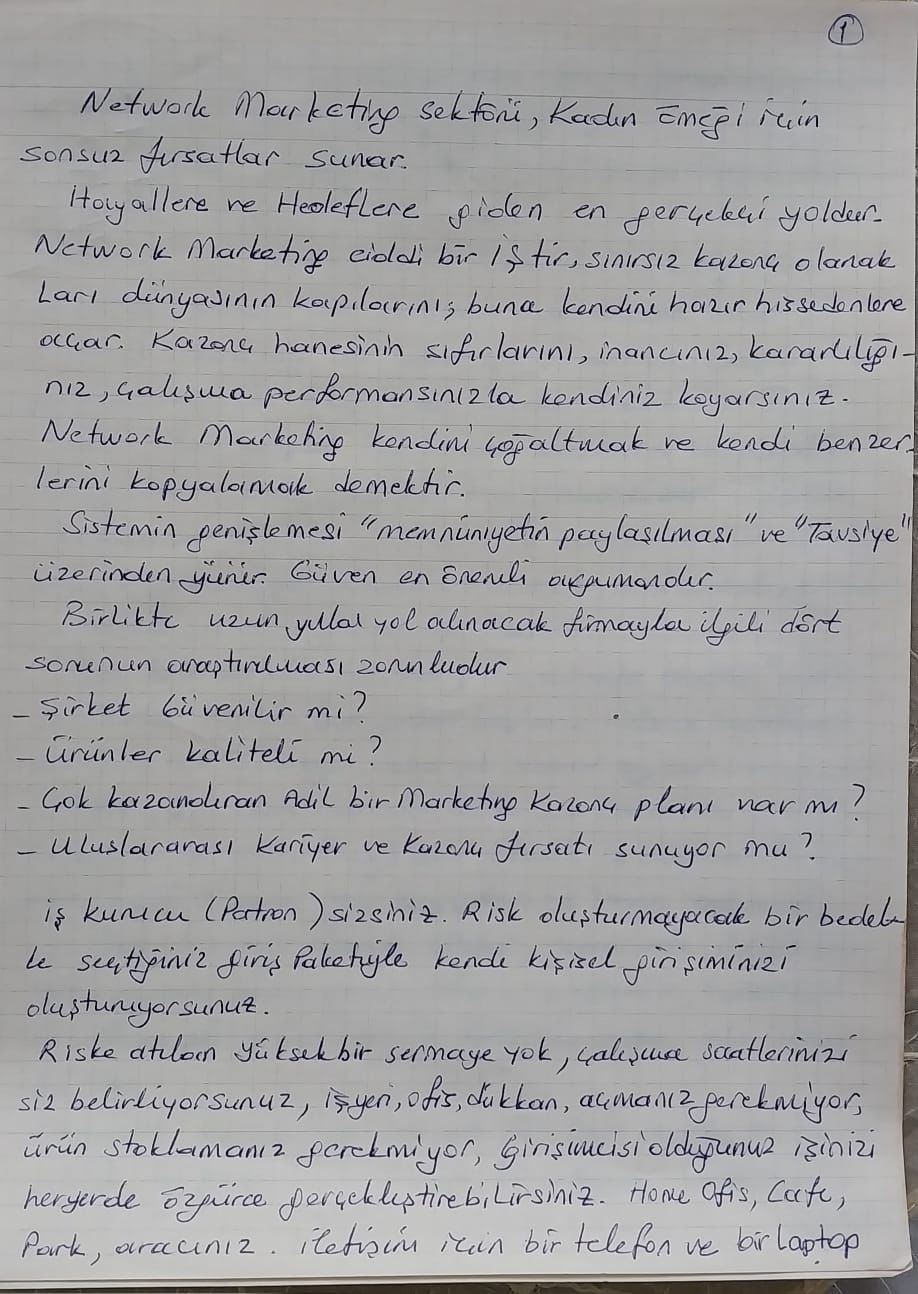 1
Network Marketing sektörü, Kadın Emeği için
sonsuz fırsatlar sunar.
Hayallere ve Hedeflere giden en gerçekçi yoldur.
Network Marketing ciddi bir iştir, sınırsız kazanç olanak
ları dünyasının kapılarını; buna kendini hazır hissedenlere
açar. Kazanç hanesinin sıfırlarını, inancınız, kararlılığı-
nız, çalışma performansınızla kendiniz koyarsınız.
Network Marketing kendini çoğaltmak ve kendi benzer
lerini kopyalamak demektir.
Sistemin genişlemesi "memnüniyetin paylaşılması" ve "Tavsiye"
üzerinden yürür. Güven en önemli argumandır.
Birlikte uzun yıllar yol alınacak firmayla ilgili dört
sorunun araştırılması zorunludur
- Şirket Güvenilir mi?
- Ürünler kaliteli mi?
- Çok kazandıran Adil bir Marketing Kazanç planı var mı?
- Uluslararası Kariyer ve Kazanç fırsatı sunuyor mu?
iş kurucu (Patron) sizsiniz. Risk oluşturmayacak bir bedel-
le seçtiğiniz giriş Paketiyle kendi kişisel girişiminizi
oluşturuyorsunuz.
Riske atılan yüksek bir sermaye yok, çalışma saatlerinizi
siz belirliyorsunuz, işyeri, ofis, dükkan, açmanız gerekmiyor,
ürün stoklamanız gerekmiyor, Girişimcisi olduğunuz işinizi
heryerde özgürce gerçekleştirebilirsiniz. Home Ofis, Cafe,
Park, aracınız. iletişim için bir telefon ve bir Laptop